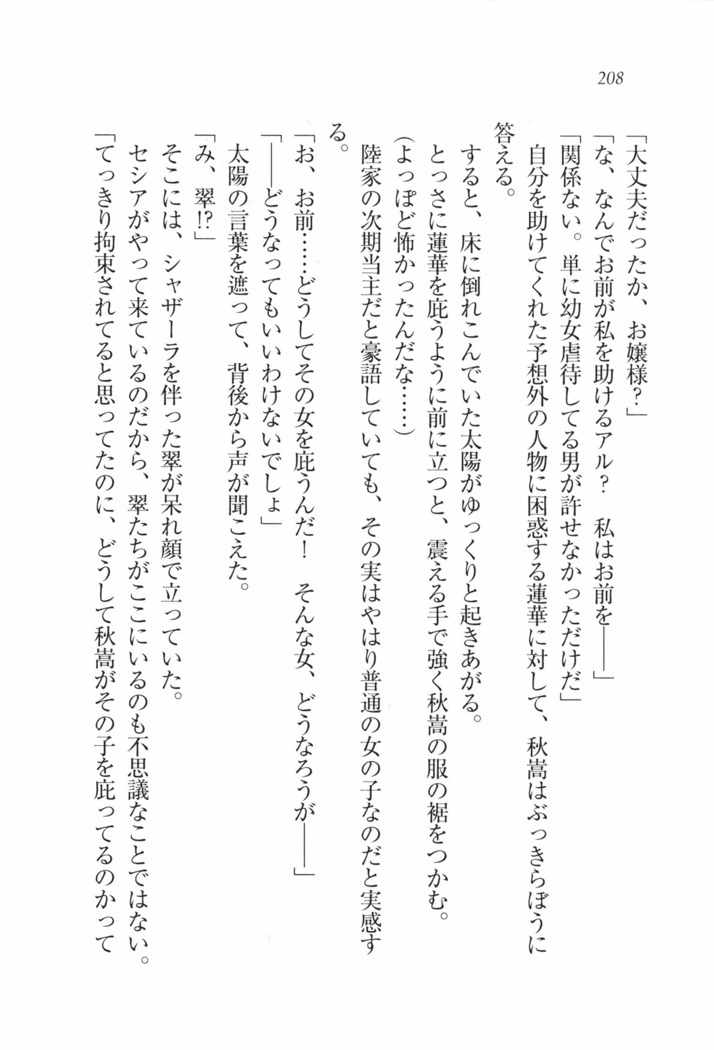 208
「大丈夫だったか、お嬢様？」
「な、なんでお前が私を助けるアル？　私はお前を――」
「関係ない。単に幼女虐待してる男が許せなかっただけだ」
　自分を助けてくれた予想外の人物に困惑する蓮華に対して、秋嵩はぶっきらぼうに
答える。
　すると、床に倒れこんでいた太陽がゆっくりと起きあがる。
　とっさに蓮華を庇うように前に立つと、震える手で強く秋嵩の服の裾をつかむ。
（よっぽど怖かったんだな……）
　陸家の次期当主だと豪語していても、その実はやはり普通の女の子なのだと実感す
る。
「お、お前……どうしてその女を庇うんだ！　そんな女、どうなろうが――」
「――どうなってもいいわけないでしょ」
　太陽の言葉を遮って、背後から声が聞こえた。
「み、翠!?」
　そこには、シャザーラを伴った翠が呆れ顔で立っていた。
　セシアがやって来ているのだから、翠たちがここにいるのも不思議なことではない。
「てっきり拘束されてると思ってたのに、どうして秋嵩がその子を庇ってるのかって